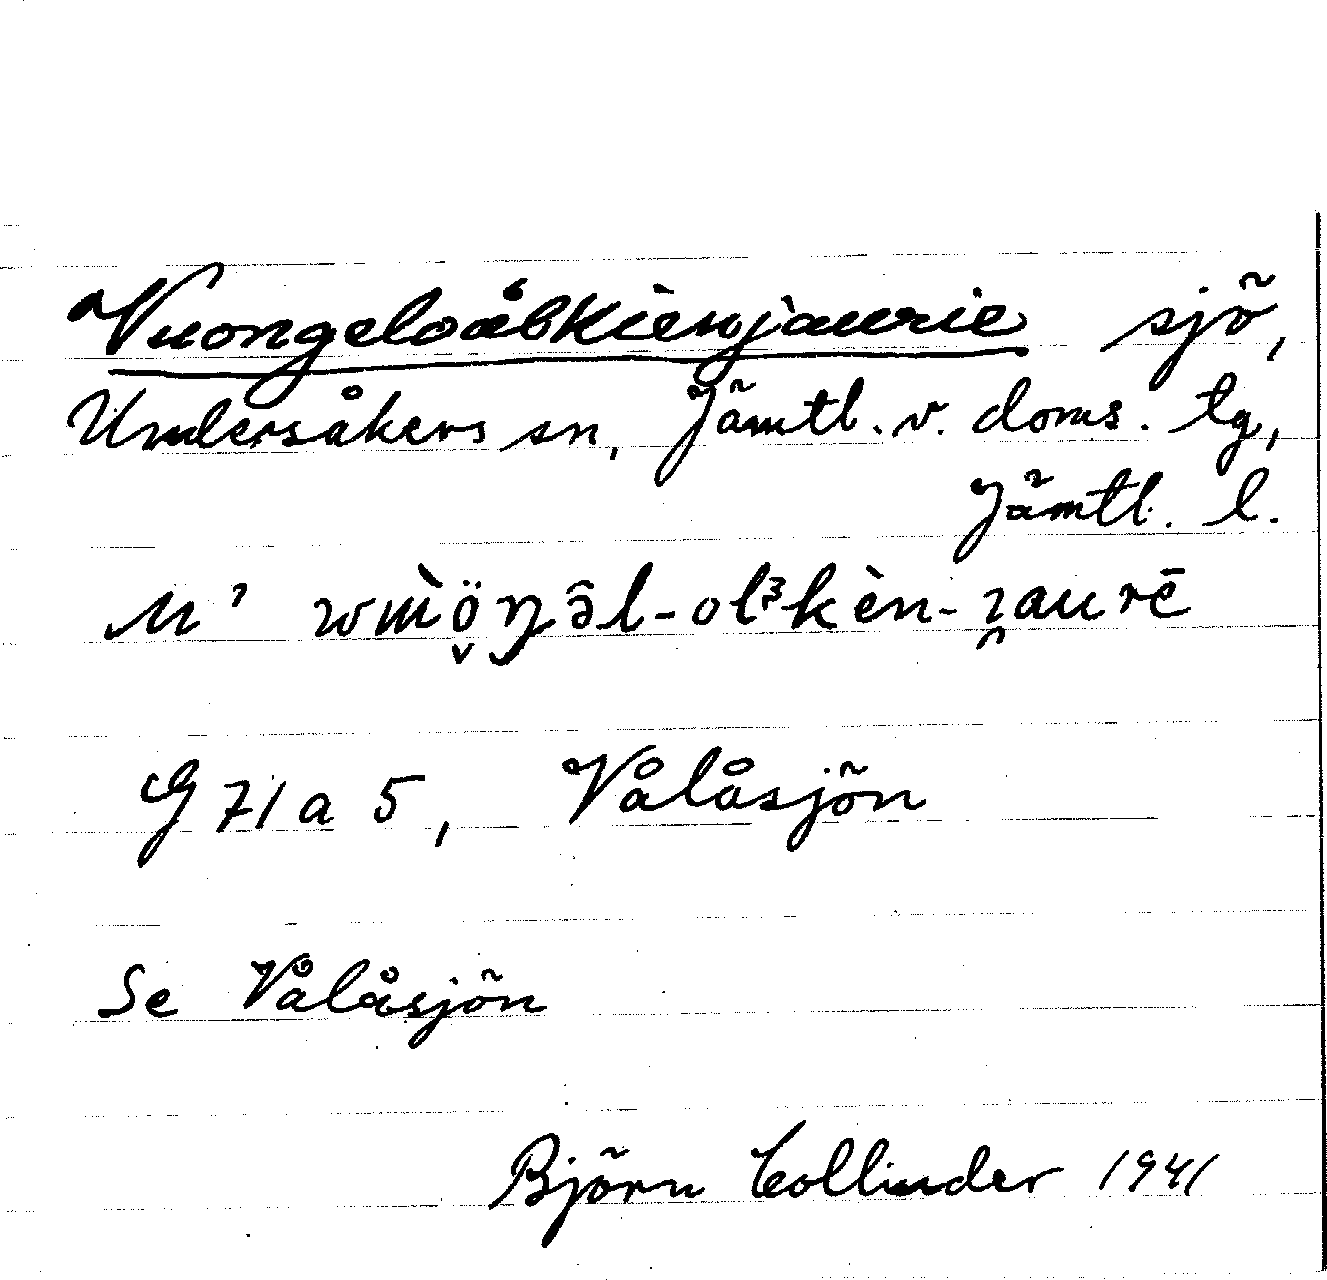 Vuongeloålkienjaurie sjö,
Undersåkers sn, Jämtl. v. doms. tg,
Jämtl. l.
G 71 a 5, Vålåsjön
Se Vålåsjön
Björn Collinder 1941